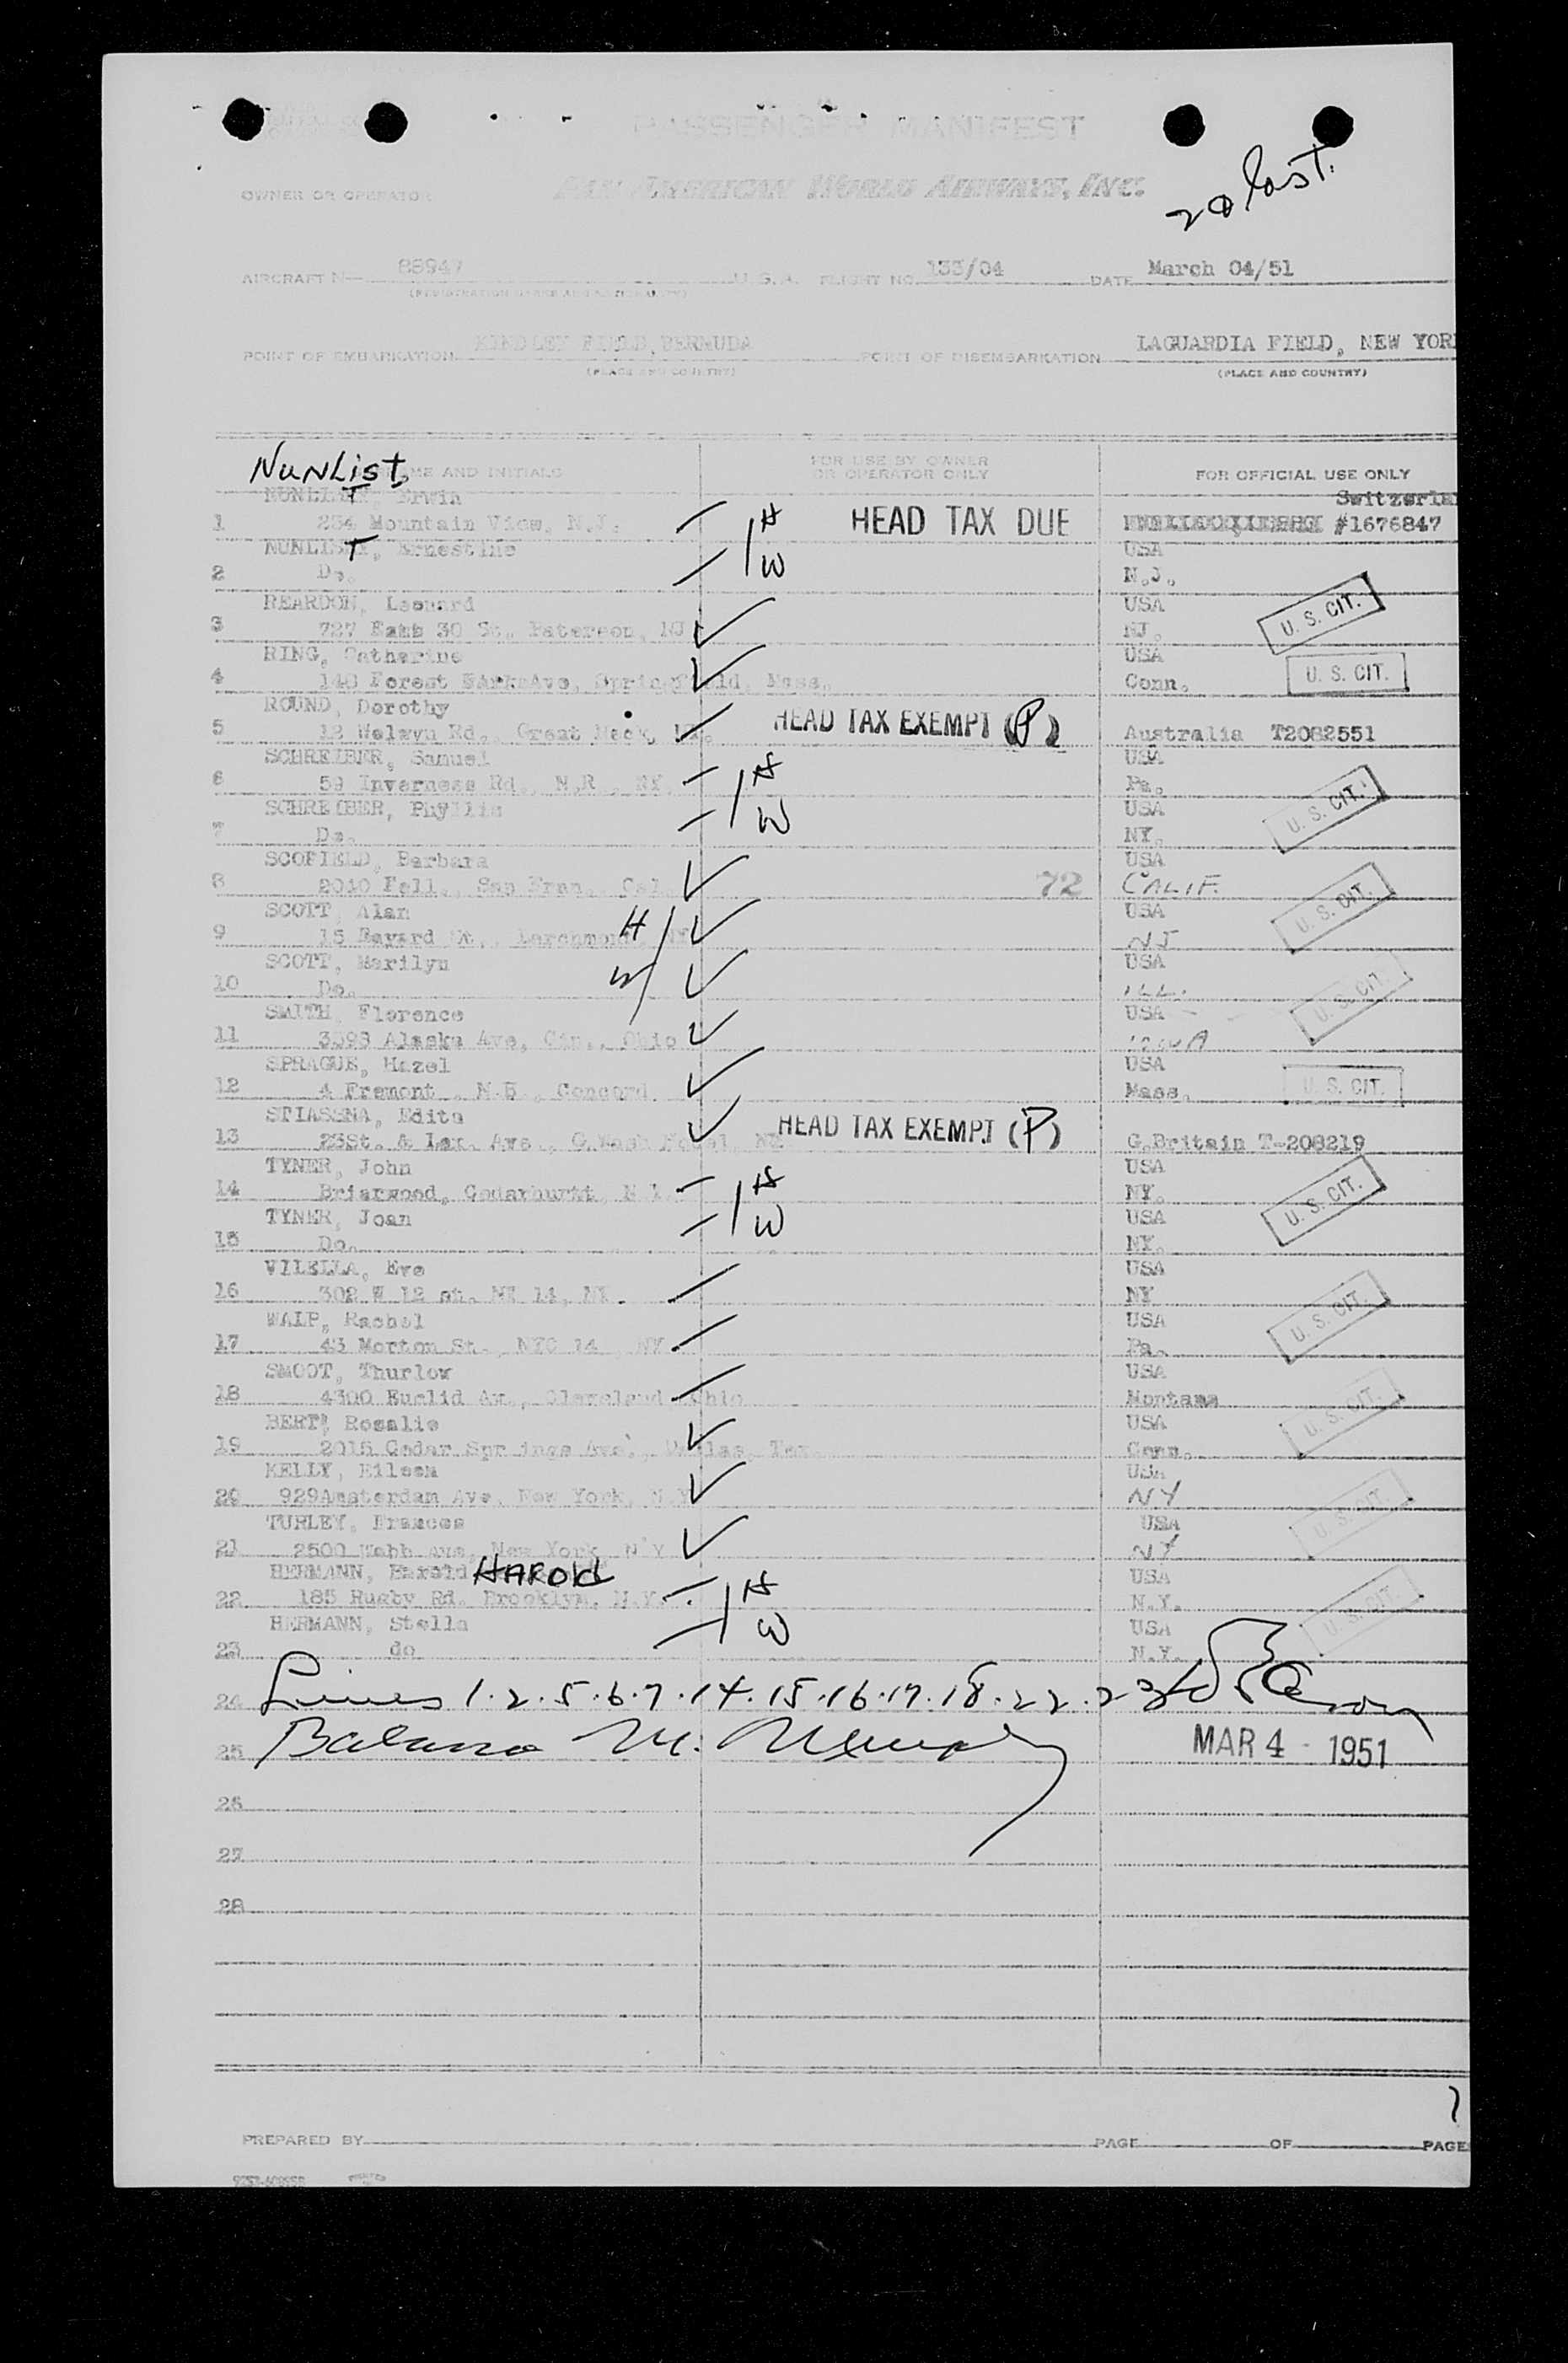 PASSENGER MANIFEST
20 last.
OWNER OR OPERATOR PAN AMERICAN WORLD AIRWAYS, INC.
AIRCRAFT N— 88947 U.S.A. FLIGHT NO. 133/04 DATE March 04/51
(REGISTRATION MARKS AND NATIONALITY)
POINT OF EMBARKATION KINDLEY FIELD, BERMUDA POINT OF DISEMBARKATION LAGUARDIA FIELD, NEW YOR
(PLACE AND COUNTRY) (PLACE AND COUNTRY)
NUNList
SURNAME AND INITIALS FOR USE BY OWNER OR OPERATOR ONLY FOR OFFICIAL USE ONLY
Erwin Switzerla
1 254 Mountain View, N.J. H HEAD TAX DUE #1676847
T, Ernestine USA
2 Do. W N.J.
REARDON, Leonard USA
3 727 East 30 St. Paterson, NJ NJ. U. S. CIT.
RING, Catherine USA
4 140 Forest Park Ave, Springfield, Mass. Conn. U. S. CIT.
ROUND, Dorothy
5 12 Welwyn Rd., Great Neck, NY. HEAD TAX EXEMPT (P) Australia T2082551
SCHREIBER, Samuel USA
6 59 Inverness Rd., N.R., NY. H Pa.
SCHREIBER, Phyllis USA U. S. CIT.
7 Do. W NY.
SCOFIELD, Barbara USA
8 2040 Fell., San Fran., Cal. 72 CALIF.
SCOTT, Alan H USA U. S. CIT.
9 15 Bayard St., Larchmont, NY NJ
SCOTT, Marilyn W USA
10 Do. ILL. U. S. CIT.
SMITH, Florence USA
11 3598 Alaska Ave, Cin., Ohio IOWA
SPRAGUE, Hazel USA
12 4 Fremont, N.H., Concord Mass. U. S. CIT.
STIASSNA, Edita
13 23St. & Lex. Ave., G.Wash Hotel, NY HEAD TAX EXEMPT (P) G.Britain T-208219
TYNER, John USA
14 Briarwood, Cedarhurst, N.Y. H NY. U. S. CIT.
TYNER, Joan USA
15 Do. W NY.
VILELLA, Eve USA
16 302 W 12 st. NY 14, NY. NY
WALP, Rachel USA U. S. CIT.
17 43 Morton St., NYC 14 NY Pa.
SMOOT, Thurlow USA
18 4300 Euclid Av., Cleveland Ohio Montana
BERT, Rosalie USA U. S. CIT.
19 2015 Cedar Springs Ave., Dallas, Tex. Conn.
KELLY, Eileen USA
20 929Amsterdam Ave, New York, N.Y NY
TURLEY, Frances USA U. S. CIT.
21 2500 Webb Ave, New York, N Y NY
HERMANN, Harold HAROld USA
22 185 Rugby Rd. Brooklyn, N.Y. H N.Y.
HERMANN, Stella USA U. S. CIT.
23 do W N.Y.
24 Lines 1.2.5.6.7.14.15.16.17.18.22.23
25 Balance M. MAR 4 - 1951
26
27
28
PREPARED BY PAGE OF PAGE